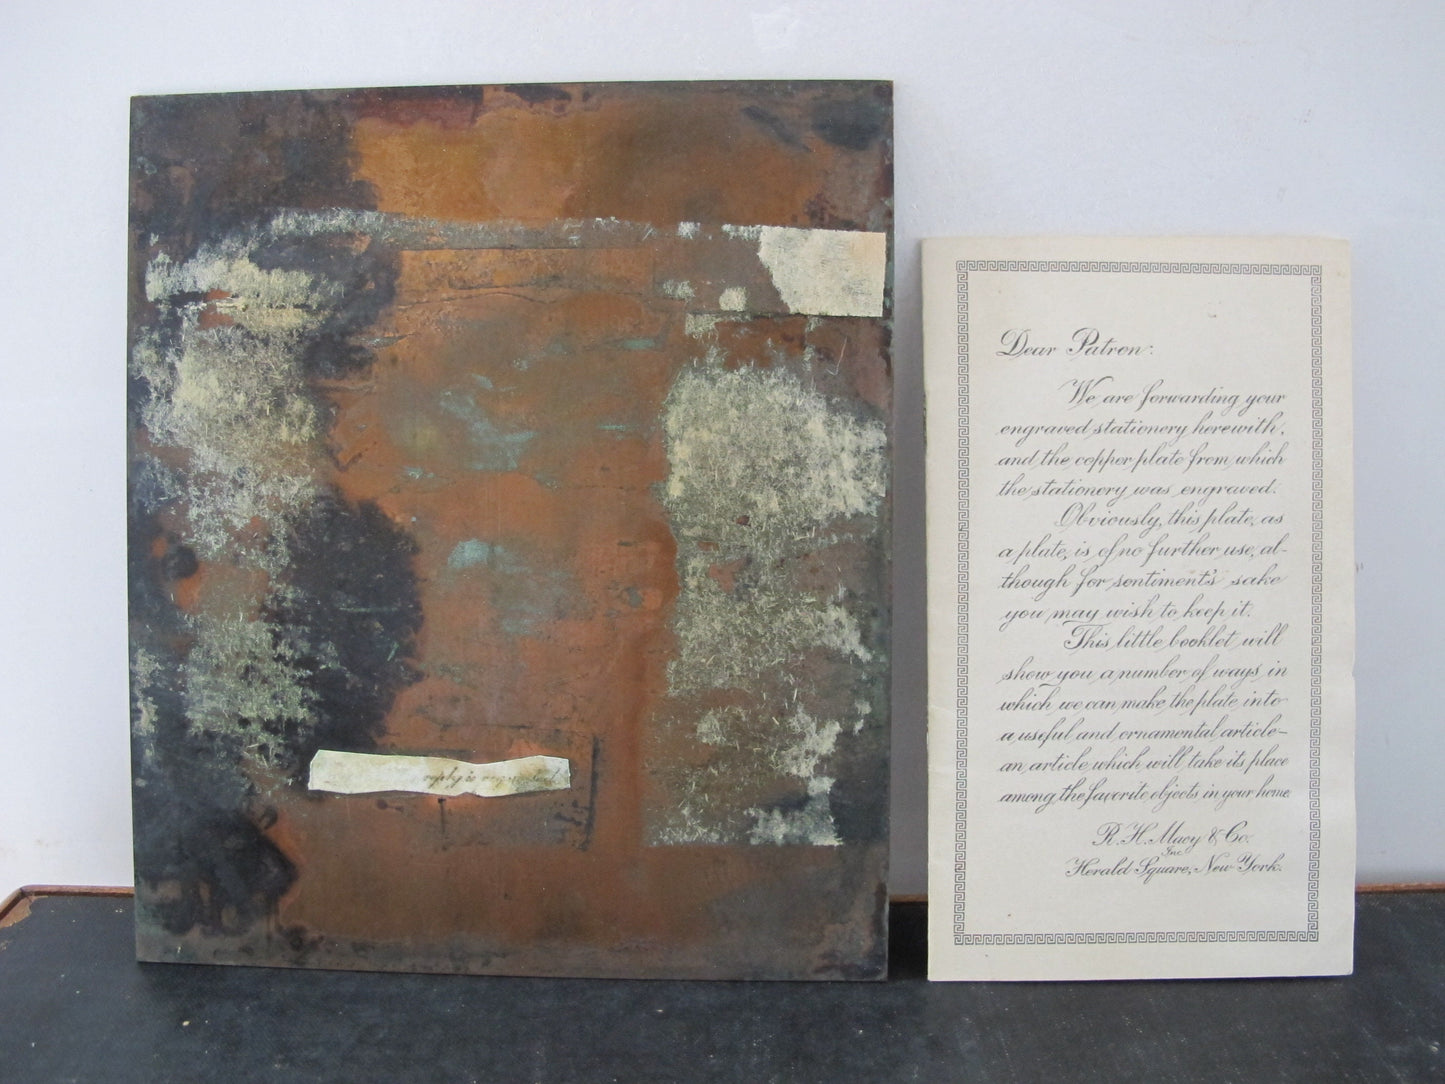 reply is requested
Dear Patron:
We are forwarding your
engraved stationery herewith,
and the copper plate from which
the stationery was engraved.
Obviously, this plate, as
a plate, is of no further use, al-
though for sentiment's sake
you may wish to keep it.
This little booklet will
show you a number of ways in
which we can make the plate into
a useful and ornamental article—
an article which will take its place
among the favorite objects in your home.
R. H. Macy & Co.
Inc
Herald Square, New York.